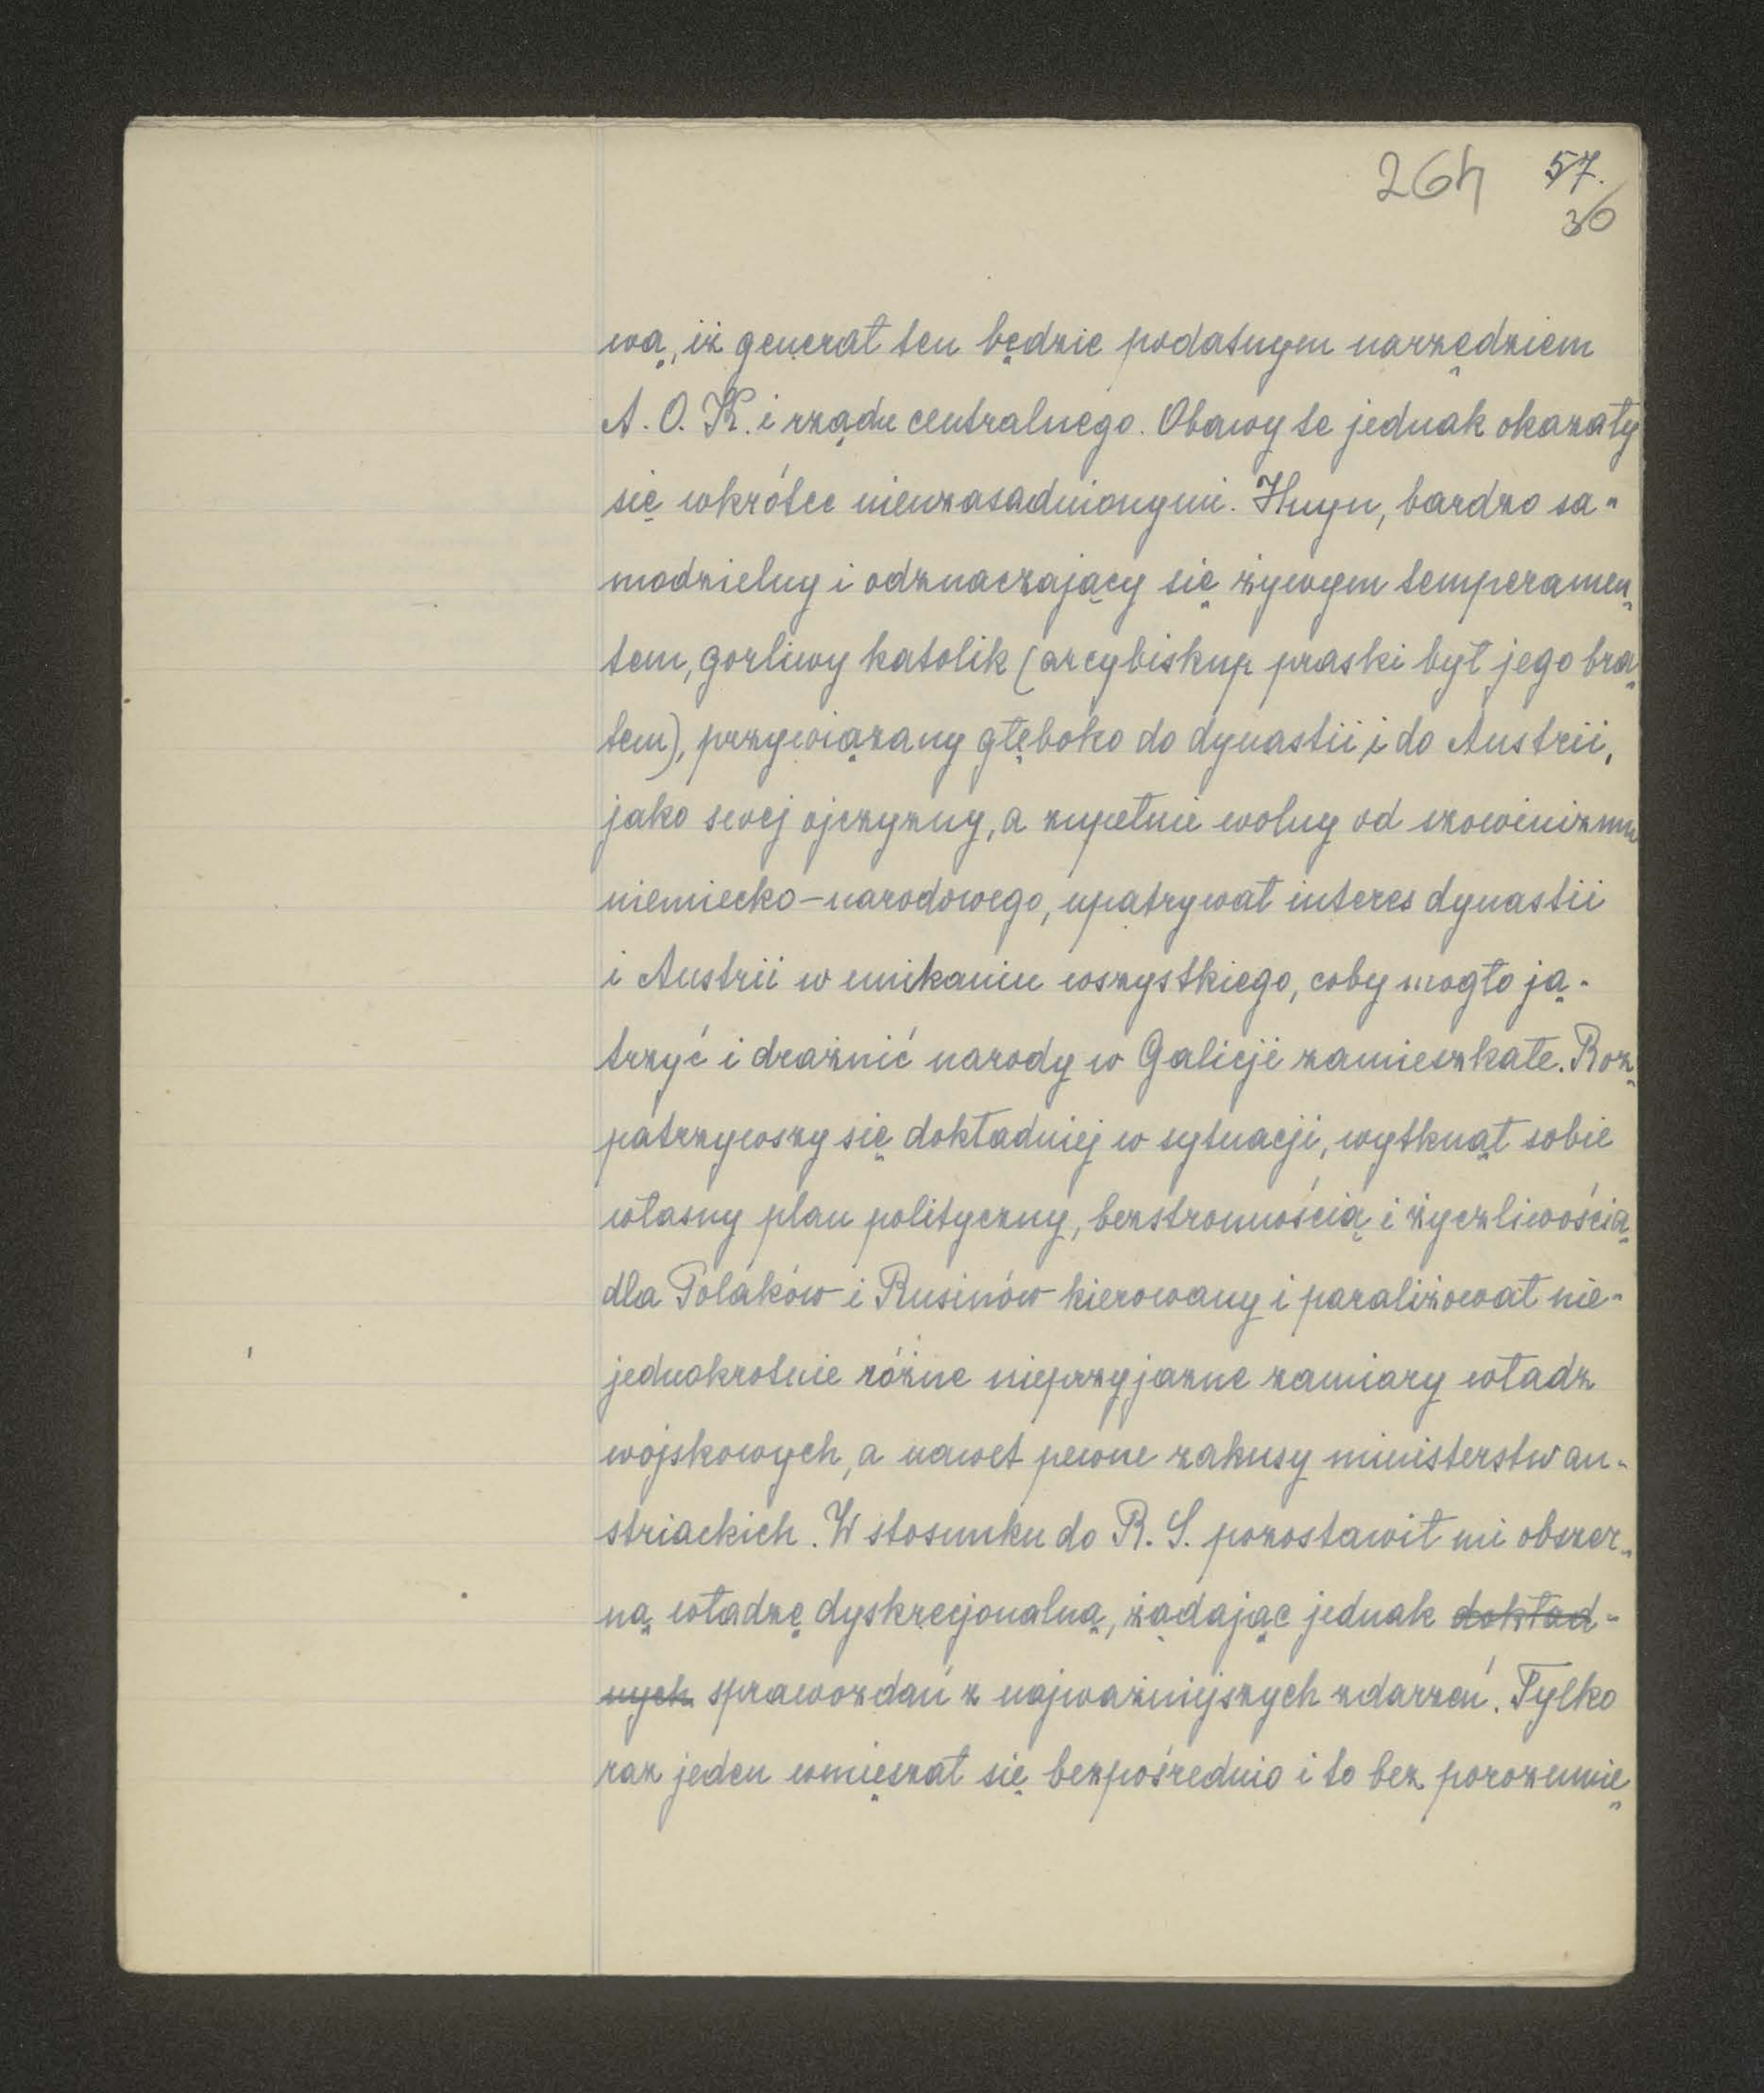 264 57.
36
wą, iż generał ten będzie podatnym narzędziem
A. O. K. i rządu centralnego. Obawy te jednak okazały
się wkrótce nieuzasadnionymi. Huyn, bardzo sa-
modzielny i odznaczający się żywym temperamen-
tem, gorliwy katolik (arcybiskup praski był jego bra-
tem), przywiązany głęboko do dynastii i do Austrii,
jako swej ojczyzny, a zupełnie wolny od szowinizmu
niemiecko-narodowego, upatrywał interes dynastii
i Austrii w unikaniu wszystkiego, coby mogło ją-
trzyć i drażnić narody w Galicji zamieszkałe. Roz-
patrzywszy się dokładniej w sytuacji, wytknął sobie
własny plan polityczny, bezstronnością i życzliwością
dla Polaków i Rusinów kierowany i paraliżował nie-
jednokrotnie różne nieprzyjazne zamiary władz
wojskowych, a nawet pewne zakusy ministerstw au-
striackich. W stosunku do R. S. pozostawił mi obszer-
ną władzę dyskrecjonalną, żądając jednak dokład-
nych sprawozdań z najważniejszych zdarzeń. Tylko
raz jeden wmięszał się bezpośrednio i to bez porozumie-